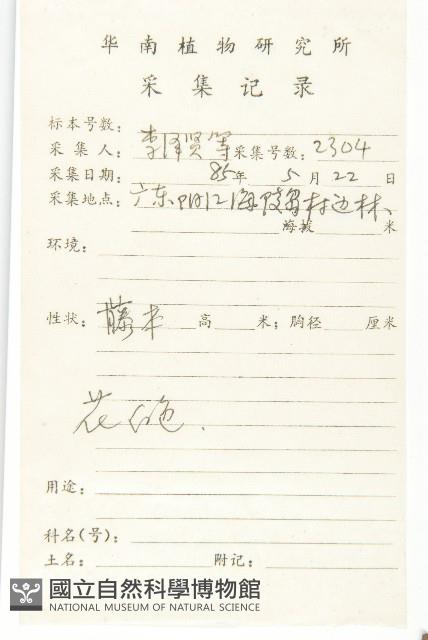 华南植物研究所
采集记录
标本号数:
采集人: 李泽贤等 采集号数: 2304
采集日期: 85年 5月 22日
采集地点: 广东阳江海陵 村边林、
海拔 米
环境:
性状: 藤本 高 米; 胸径 厘米
花 色.
用途:
科名(号):
土名: 附记:
國立自然科學博物館
NATIONAL MUSEUM OF NATURAL SCIENCE